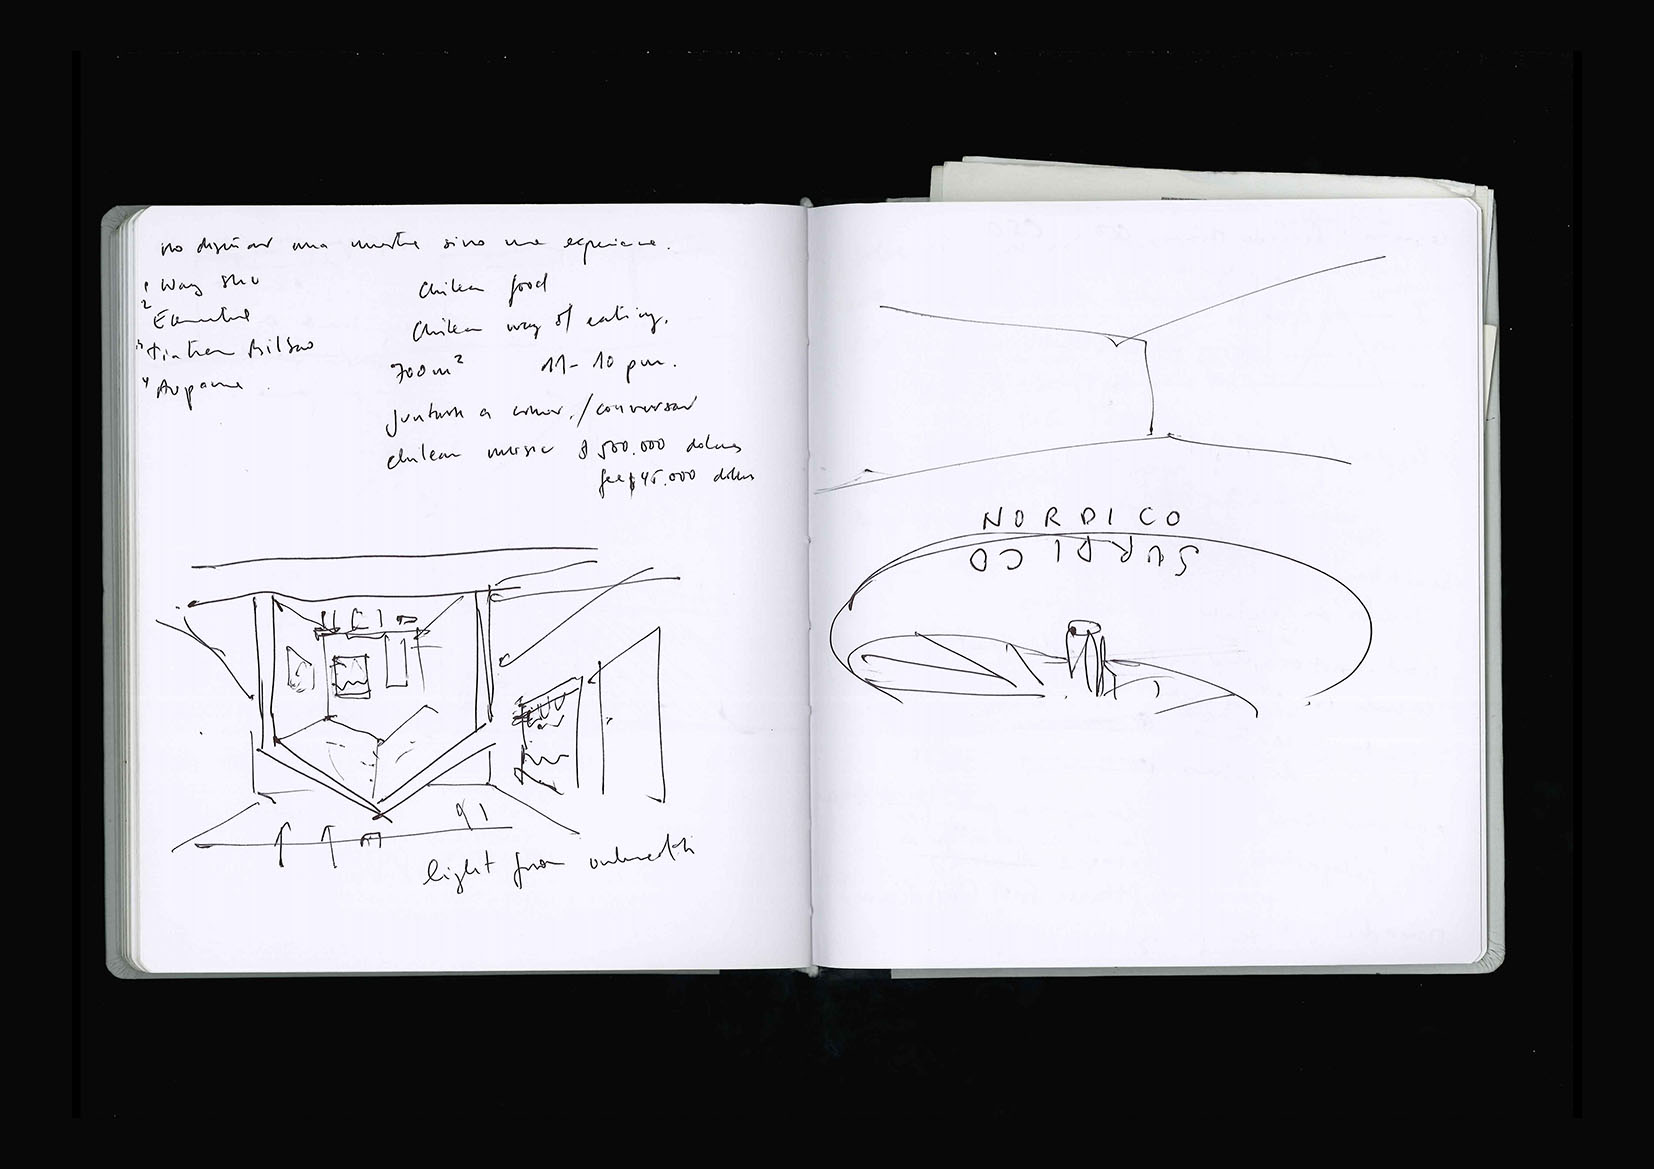 no diseñar una muestra sino una experiencia.
1 Way Shu
2
3 Bilbao
4
Chilean food
Chilean way of eating.
700m² 11- 10 pm.
juntarse a comer / conversar
chilean music $ 500.000 dolares
fee $ 45.000 dolares
light from underneath
NORDICO
SURDICO